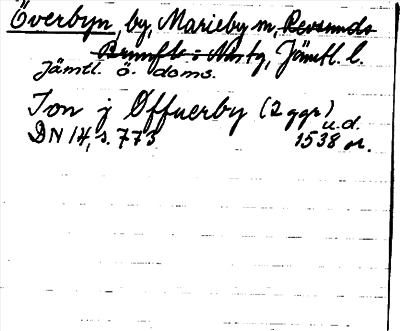 Överbyn, by, Marieby sn, Revsunds
Brunflo o. Näs tg, Jämtl. l.
Jämtl. ö. doms.
Jon j Øffuerby (2 ggr)
u.d.
DN 14, s. 773 1538 or.